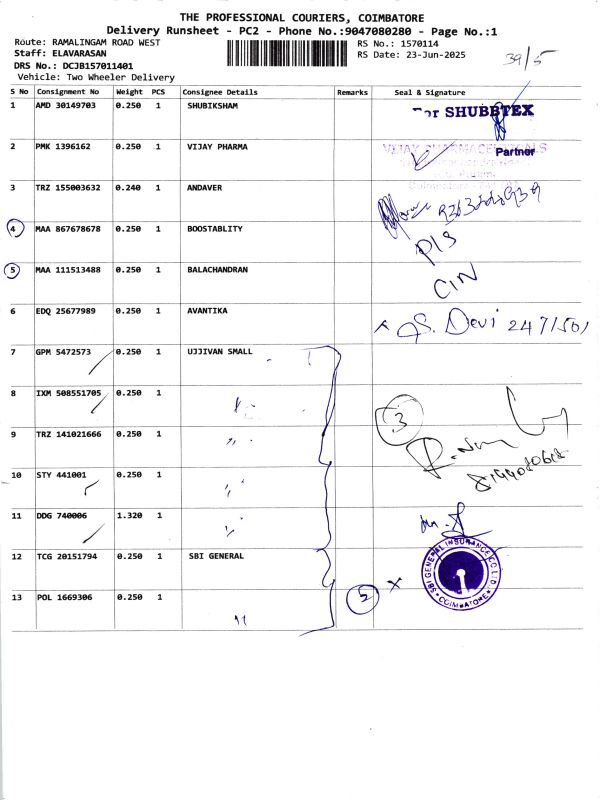 THE PROFESSIONAL COURIERS, COIMBATORE
Delivery Runsheet - PC2 - Phone No.:9047080280 - Page No.:1
Route: RAMALINGAM ROAD WEST
RS No.: 1570114
39/5
Staff: ELAVARASAN
RS Date: 23-Jun-2025
DRS No.: DCJB157011401
Vehicle: Two Wheeler Delivery
S No Consignment No Weight PCS Consignee Details Remarks Seal & Signature
1 AMD 30149703 0.250 1 SHUBIKSHAM
For SHUBBTEX
Partner
2 PMK 1396162 0.250 1 VIJAY PHARMA
VIJAY PHARMACEUTICALS
3 TRZ 155003632 0.240 1 ANDAVER
4 MAA 867678678 0.250 1 BOOSTABLITY
D/S
5 MAA 111513488 0.250 1 BALACHANDRAN
CIN
6 EDQ 25677989 0.250 1 AVANTIKA
S. Devi 247/501
7 GPM 5472573 0.250 1 UJJIVAN SMALL
8 IXM 508551705 0.250 1 ,,
3
9 TRZ 141021666 0.250 1 ,,
10 STY 441001 0.250 1 ,,
11 DDG 740006 1.320 1 ,,
12 TCG 20151794 0.250 1 SBI GENERAL
SBI GENERAL INSURANCE CO.LTD.
COIMBATORE
13 POL 1669306 0.250 1 ,,
5 x